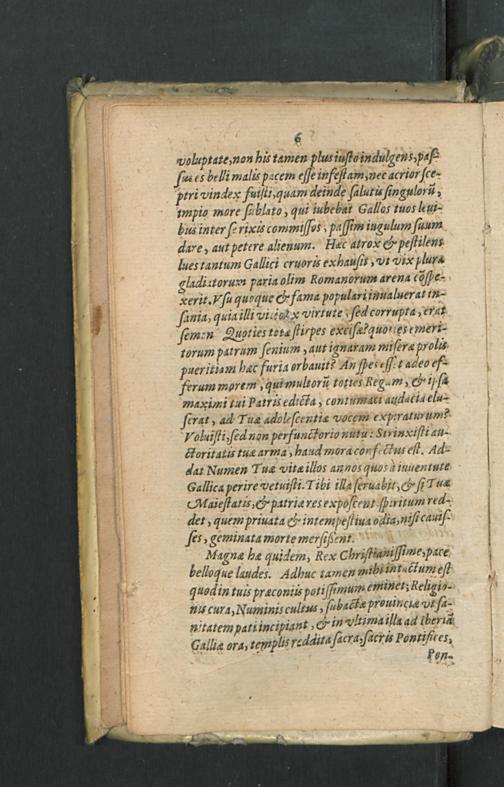 6
voluptate, non his tamen plus iusto indulgens, pas-
sus es belli malis pacem esse infestam, nec acrior sce-
ptri vindex fuisti, quam deinde salutis singulorũ,
impio more sublato, qui iubebat Gallos tuos leui-
bus inter se rixis commissos, passim iugulum suum
dare, aut petere alienum. Hæc atrox & pestilens
lues tantum Gallici cruoris exhausit, vt vix plura
gladiatorum paria olim Romanorum arena cõspe-
xerit. Vsu quoque & fama populari inualuerat in-
sania, quia illi virtute, sed corrupta, erat
semen. Quoties totæ stirpes excisæ? quoties emeri-
torum patrum senium, aut ignaram miseræ prolis
pueritiam hæc furia orbauit? An spes esset adeo ef-
ferum morem, qui multorũ toties Regum, & ipsa
maximi tui Patris edicta, contumaci audacia elu-
serat, ad Tuæ adolescentiæ vocem expiraturum?
Voluisti, sed non perfunctorio nutu: Strinxisti au-
ctoritatis tuæ arma, haud mora confectus est. Ad-
dat Numen Tuæ vitæ illos annos quos à iuuentute
Gallica perire vetuisti. Tibi illa seruabit, & si Tuæ
Maiestatis, & patriæ res exposcent spiritum red-
det, quem priuata & intempestiua odia, nisi cauis-
ses, geminata morte mersissent.
Magnæ hæ quidem, Rex Christianissime, pace
belloque laudes. Adhuc tamen mihi intactum est
quod in tuis præconiis potissimum eminet; Religio-
nis cura, Numinis cultus, subactæ prouinciæ vt sa-
nitatem pati incipiant, & in vltima illa ad Iberiã
Galliæ ora, templis reddita sacra, sacris Pontifices,
Pon-